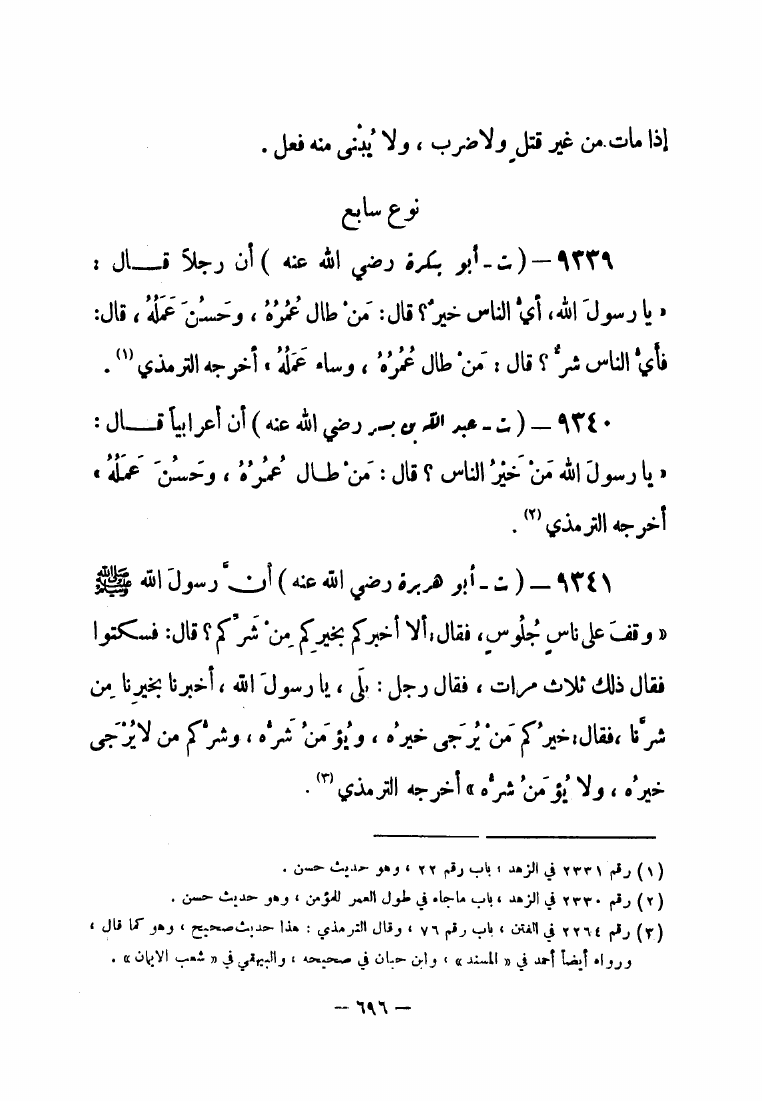 إذا مات من غير قتلٍ ولا ضرب ، ولا يُبْنى منه فعل .
نوع سابع
٩٣٣٩ – ( ت - أبو بكرة رضي الله عنه ) أن رجلاً قــال :
« يا رسولَ الله، أيُّ الناس خيرٌ؟ قال: مَنْ طال عُمُرُهُ ، وحَسُنَ عَمَلُهُ ، قال:
فأيُّ الناس شرٌّ ؟ قال : مَنْ طال عُمُرُهُ ، وساء عَمَلُهُ » أخرجه الترمذي (١) .
٩٣٤٠ – ( ت - عبد الله بن بسر رضي الله عنه ) أن أعرابياً قــال :
« يا رسولَ الله مَنْ خَيْرُ الناس ؟ قال : مَنْ طــال عُمُرُهُ ، وحَسُنَ عَمَلُهُ »
أخرجه الترمذي (٢) .
٩٣٤١ – ( ت - أبو هريرة رضي الله عنه ) أنَّ رسولَ الله ﷺ
« وقفَ على ناسٍ جُلُوسٍ، فقال: ألا أخبركم بخيرِكم مِنْ شَرِّكم؟ قال: فسكتوا
فقال ذلك ثلاث مرات ، فقال رجل : بلَى ، يا رسولَ الله ، أخبرنا بخيرِنا مِن
شرِّنا ، فقال: خيرُكم مَنْ يُرَجى خيرُه ، ويُؤمَنُ شَرُّه ، وشرُّكم من لا يُرْجَى
خيرُه ، ولا يُؤمَنُ شرُّه » أخرجه الترمذي (٣) .
(١) رقم ٢٣٣١ في الزهد ، باب رقم ٢٢ ، وهو حديث حسن .
(٢) رقم ٢٣٣٠ في الزهد ، باب ماجاء في طول العمر للمؤمن ، وهو حديث حسن .
(٣) رقم ٢٢٦٤ في الفتن ، باب رقم ٧٦ ، وقال الترمذي : هذا حديث صحيح ، وهو كما قال ،
ورواه أيضاً أحمد في « المسند » ، وابن حبان في صحيحه ، والبيهقي في « شعب الايمان » .
– ٦٩٦ –